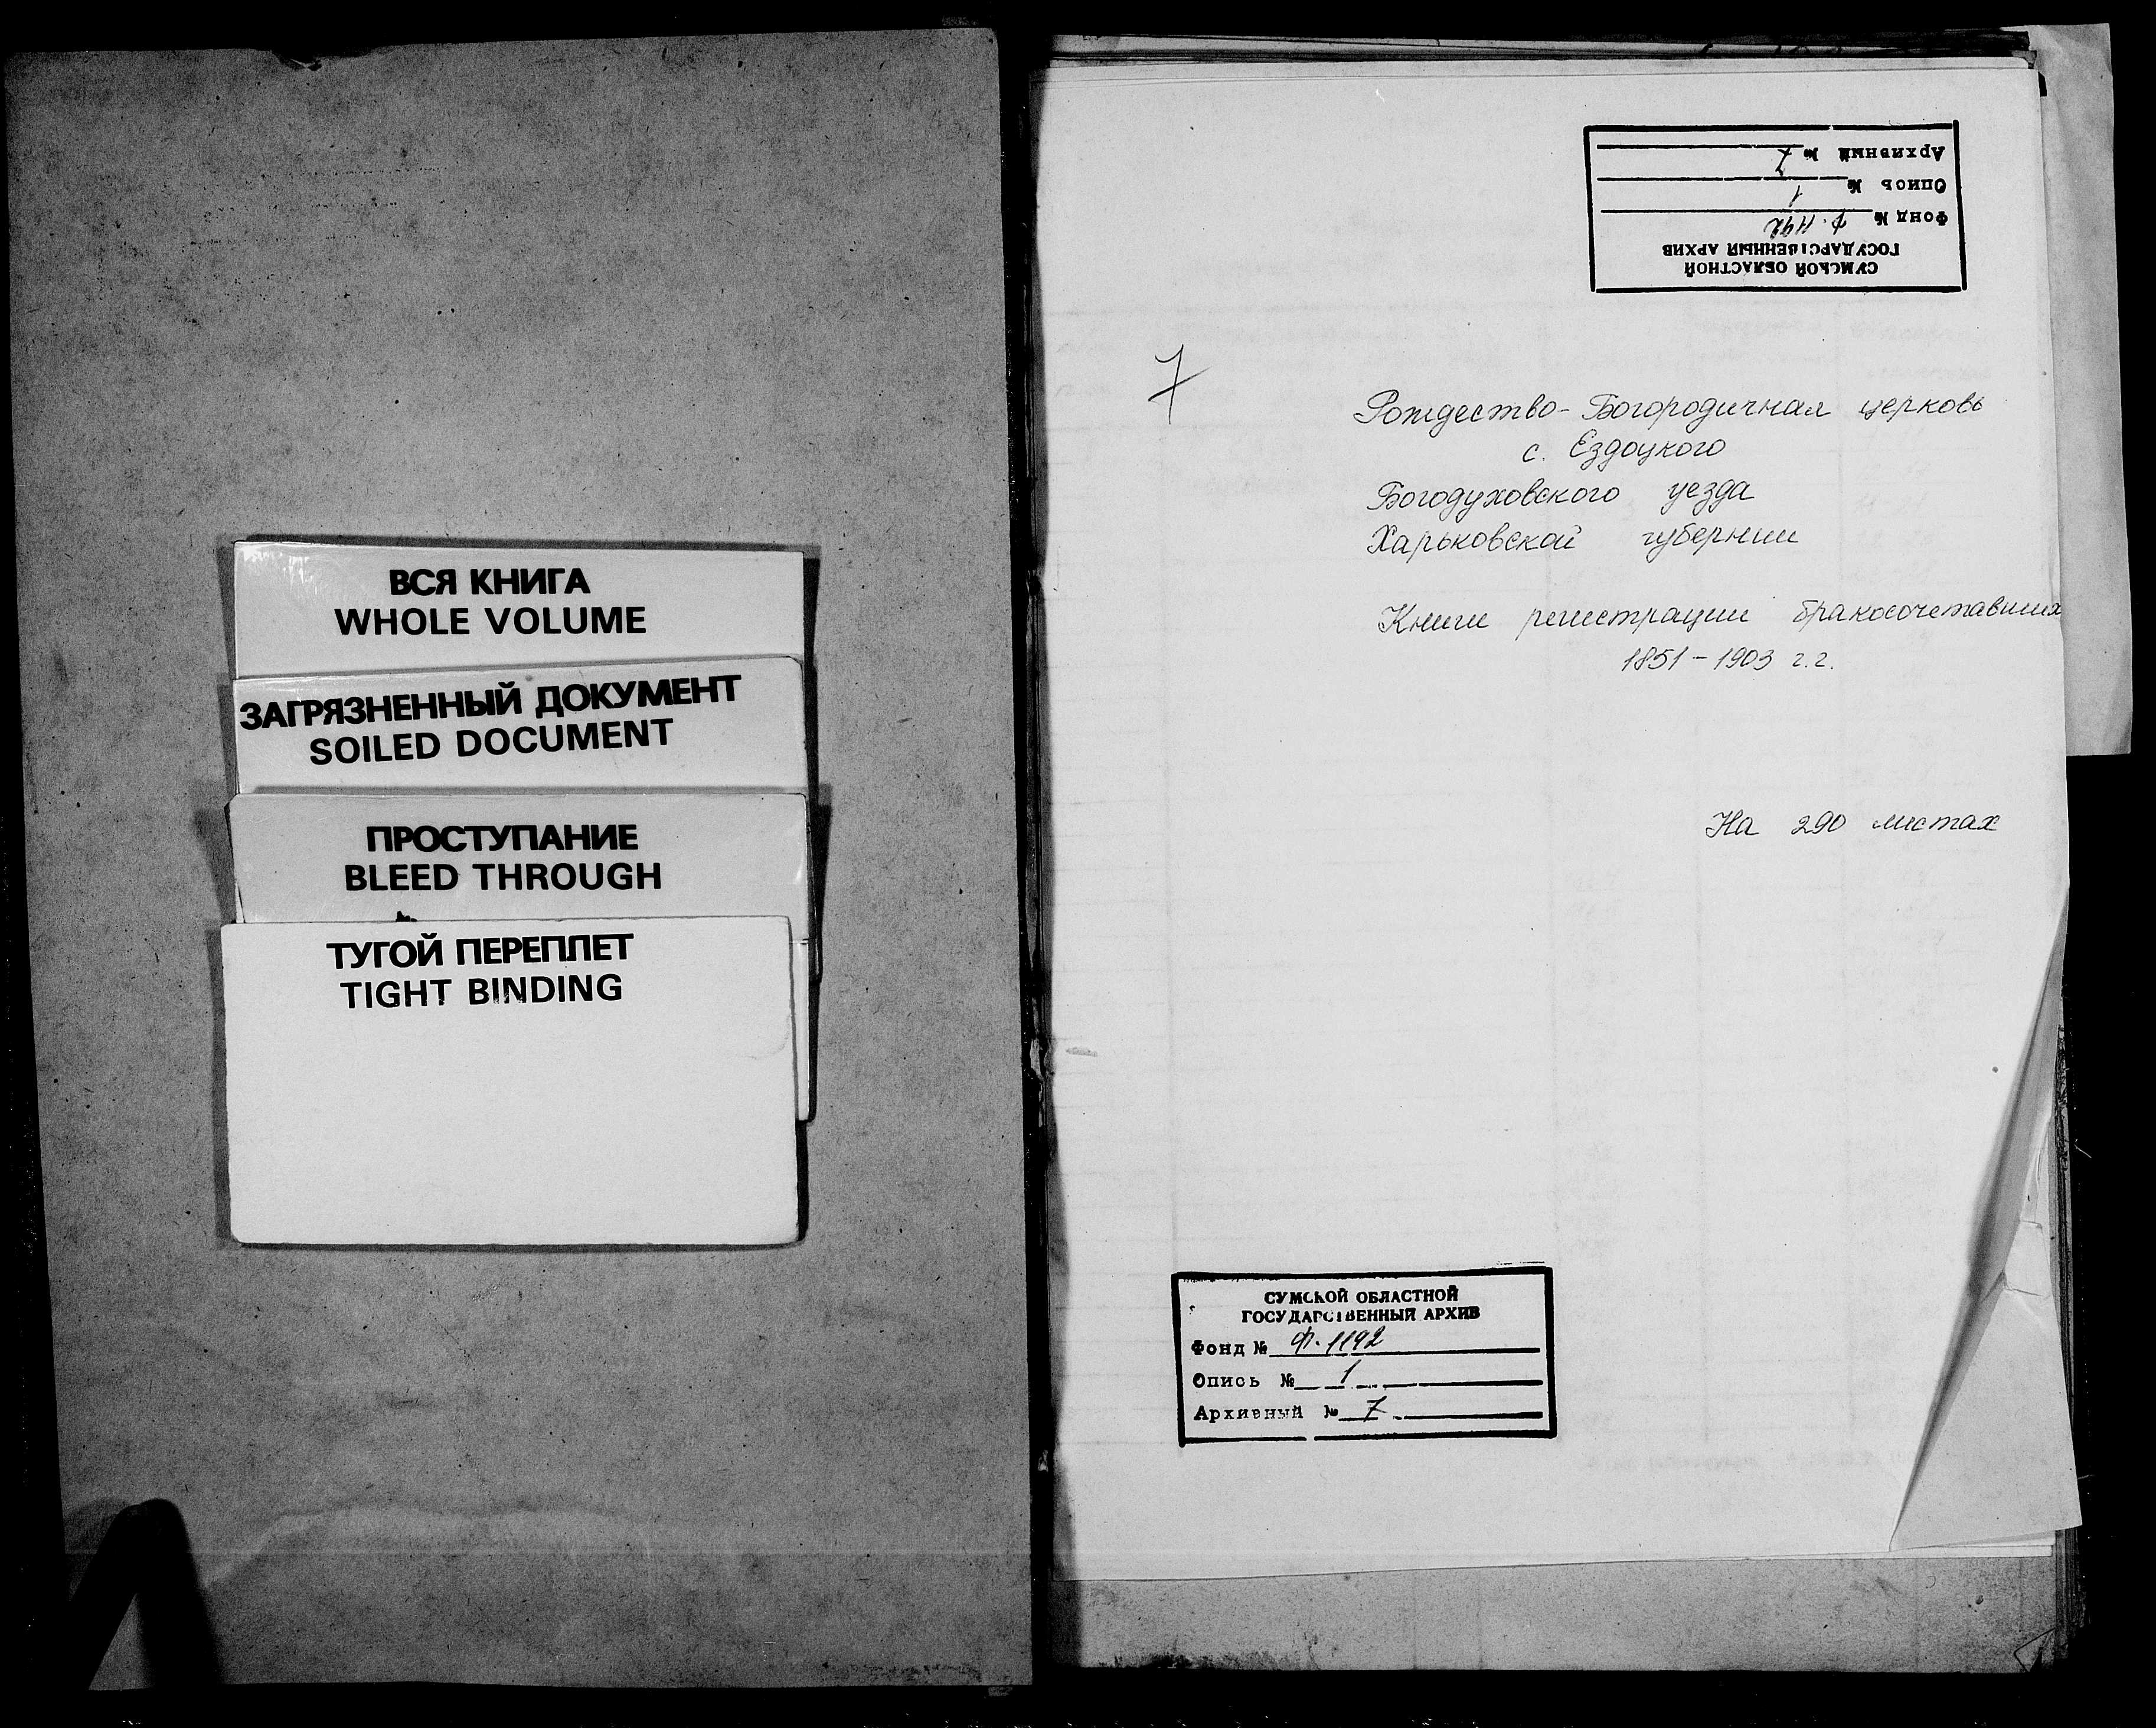 ВСЯ КНИГА
WHOLE VOLUME
ЗАГРЯЗНЕННЫЙ ДОКУМЕНТ
SOILED DOCUMENT
ПРОСТУПАНИЕ
BLEED THROUGH
ТУГОЙ ПЕРЕПЛЕТ
TIGHT BINDING
СУМСКОЙ ОБЛАСТНОЙ
ГОСУДАРСТВЕННЫЙ АРХИВ
Фонд № Ф. 1192
Опись № 1
Архивный № 7
7
Рождество-Богородичная церковь
с. Ездоцкого
Богодуховского уезда
Харьковской губернии
Книги регистрации бракосочетавших
1851-1903 г.г.
На 290 листах
СУМСКОЙ ОБЛАСТНОЙ
ГОСУДАРСТВЕННЫЙ АРХИВ
Фонд № Ф. 1192
Опись № 1
Архивный № 7